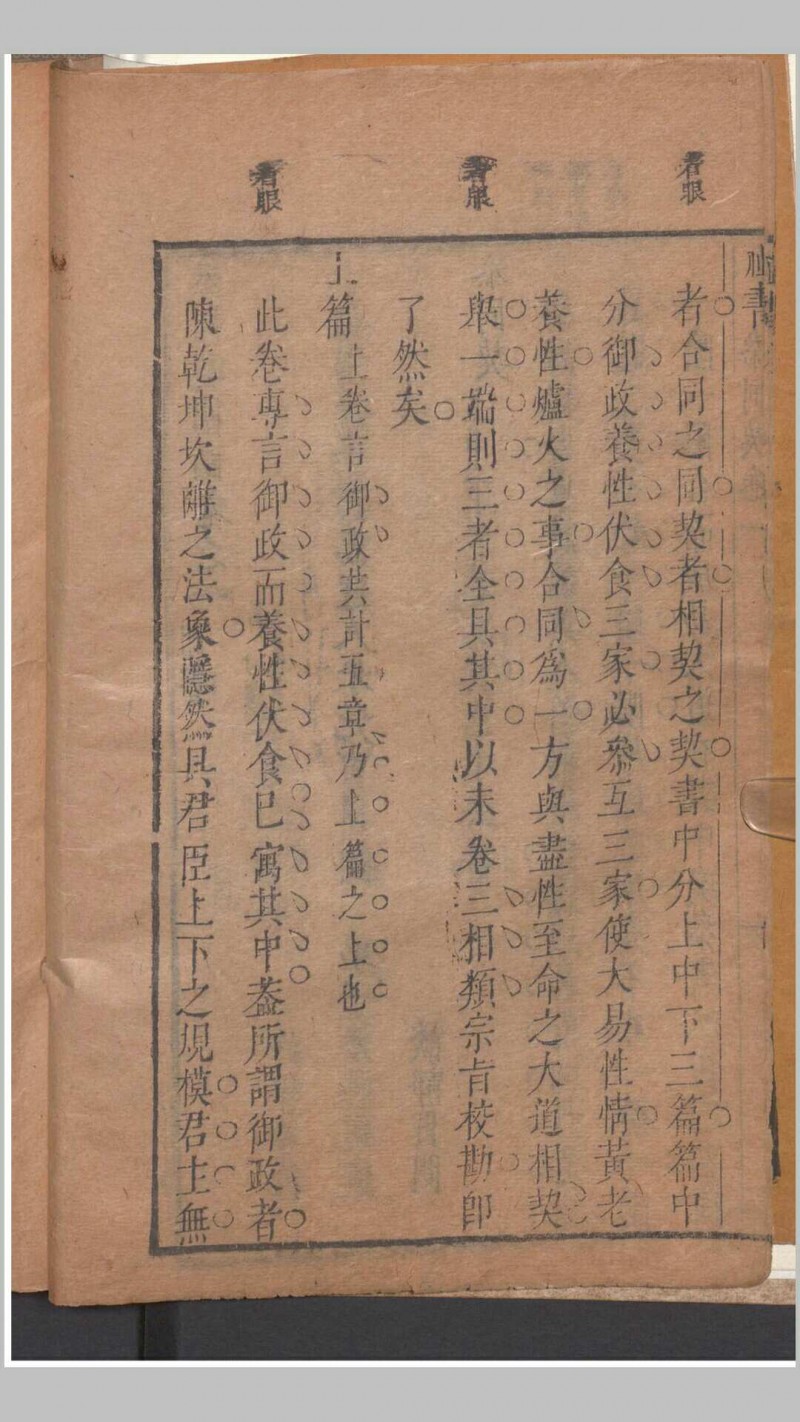 着眼
着眼
着眼
者合同之同契者相契之契書中分上中下三篇篇中
分御政養性伏食三家必叅互三家使大易性情黃老
養性爐火之事合同爲一方與盡性至命之大道相契
舉一端則三者全具其中以末卷三相類宗旨校勘卽
了然矣
上篇 上卷言御政共計五章乃上篇之上也
此卷專言御政而養性伏食已寓其中葢所謂御政者
陳乾坤坎離之法象隱然具君臣上下之規模君主無